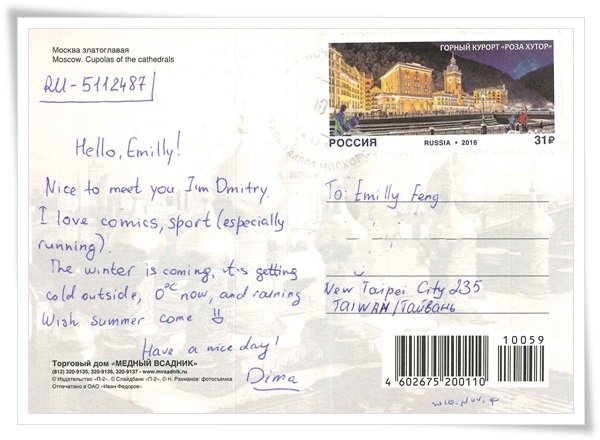 Москва златоглавая
Moscow. Cupolas of the cathedrals
RU-5112487
Hello, Emilly!
Nice to meet you I'm Dmitry.
I love comics, sport (especially
running).
The winter is coming, it's getting
cold outside, 0°C now, and raining
Wish summer come
Have a nice day!
Dima
Торговый дом «МЕДНЫЙ ВСАДНИК»
(812) 320-9135, 320-9136, 320-9137 • www.mvsadnik.ru
© Издательство «П-2». © Слайдбанк «П-2». © Н. Рахманов: фотосъемка
Отпечатано в ОАО «Иван Федоров»
ГОРНЫЙ КУРОРТ «РОЗА ХУТОР»
РОССИЯ RUSSIA • 2016 31₽
To: Emilly Feng
New Taipei City 235
TAIWAN/ТАЙВАНЬ
10059
4 602675 200110